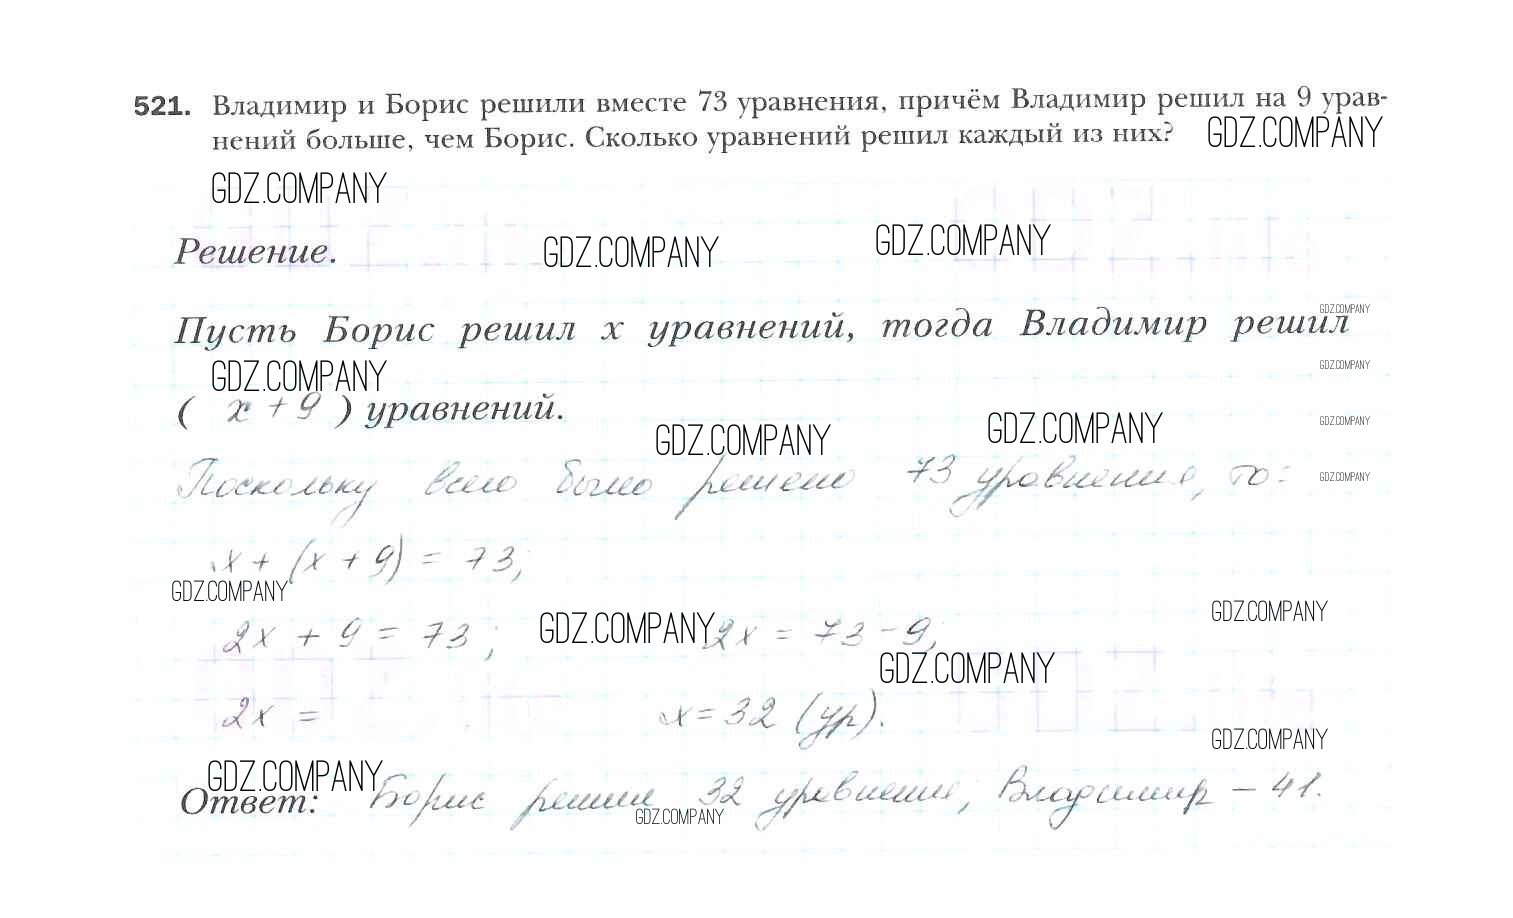 521. Владимир и Борис решили вместе 73 уравнения, причём Владимир решил на 9 урав-
нений больше, чем Борис. Сколько уравнений решил каждый из них?
GDZ.COMPANY
GDZ.COMPANY
Решение.
GDZ.COMPANY
GDZ.COMPANY
GDZ.COMPANY
Пусть Борис решил x уравнений, тогда Владимир решил
GDZ.COMPANY
GDZ.COMPANY
( x + 9 ) уравнений.
GDZ.COMPANY
GDZ.COMPANY
GDZ.COMPANY
Поскольку всего было решено 73 уравнения, то:
GDZ.COMPANY
x + (x + 9) = 73;
GDZ.COMPANY
GDZ.COMPANY
2x + 9 = 73; 2x = 73 - 9;
GDZ.COMPANY
GDZ.COMPANY
2x = x = 32 (ур).
GDZ.COMPANY
GDZ.COMPANY
Ответ: Борис решил 32 уравнения, Владимир – 41.
GDZ.COMPANY